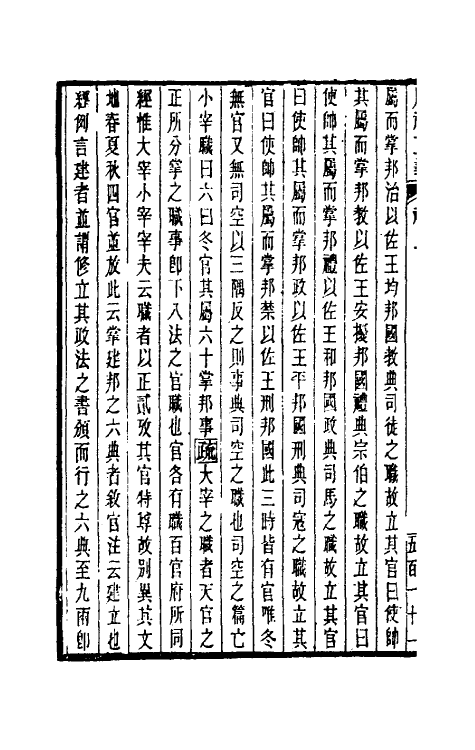 屬而掌邦治以佐王均邦國教典司徒之職故立其官曰使帥
其屬而掌邦教以佐王安擾邦國禮典宗伯之職故立其官曰
使帥其屬而掌邦禮以佐王和邦國政典司馬之職故立其官
曰使帥其屬而掌邦政以佐王平邦國刑典司寇之職故立其
官曰使帥其屬而掌邦禁以佐王刑邦國此三時皆有官唯冬
無官又無司空以三隅反之則事典司空之職也司空之篇亡
小宰職曰六曰冬官其屬六十掌邦事疏大宰之職者天官之
正所分掌之職事卽下八法之官職也官各有職百官府所同
經惟大宰小宰宰夫云職者以正貳攷其官特尊故別異其文
地春夏秋四官並放此云掌建邦之六典者敘官注云建立也
經例言建者並謂修立其政法之書頒而行之六典至九兩卽